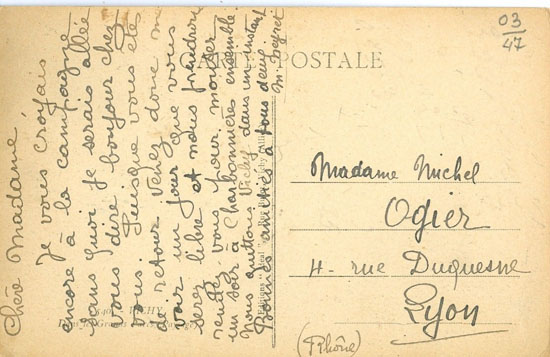 Chère Madame,
Je vous croyais
encore à la campagne
sans quoi je serais allée
vous dire bonjour chez
vous. Puisque vous êtes
de retour venez donc me
voir un jour que vous
serez libre et nous prendrons
rendez vous pour monter
un soir à Charbonnières ensemble.
Nous quittons Vichy dans un instant
Bonnes amitiés à tous deux.
M. Peyret
CARTE POSTALE
03
47
Madame Michel
Ogier
4 - rue Duquesne
Lyon
(Rhône)
VICHY